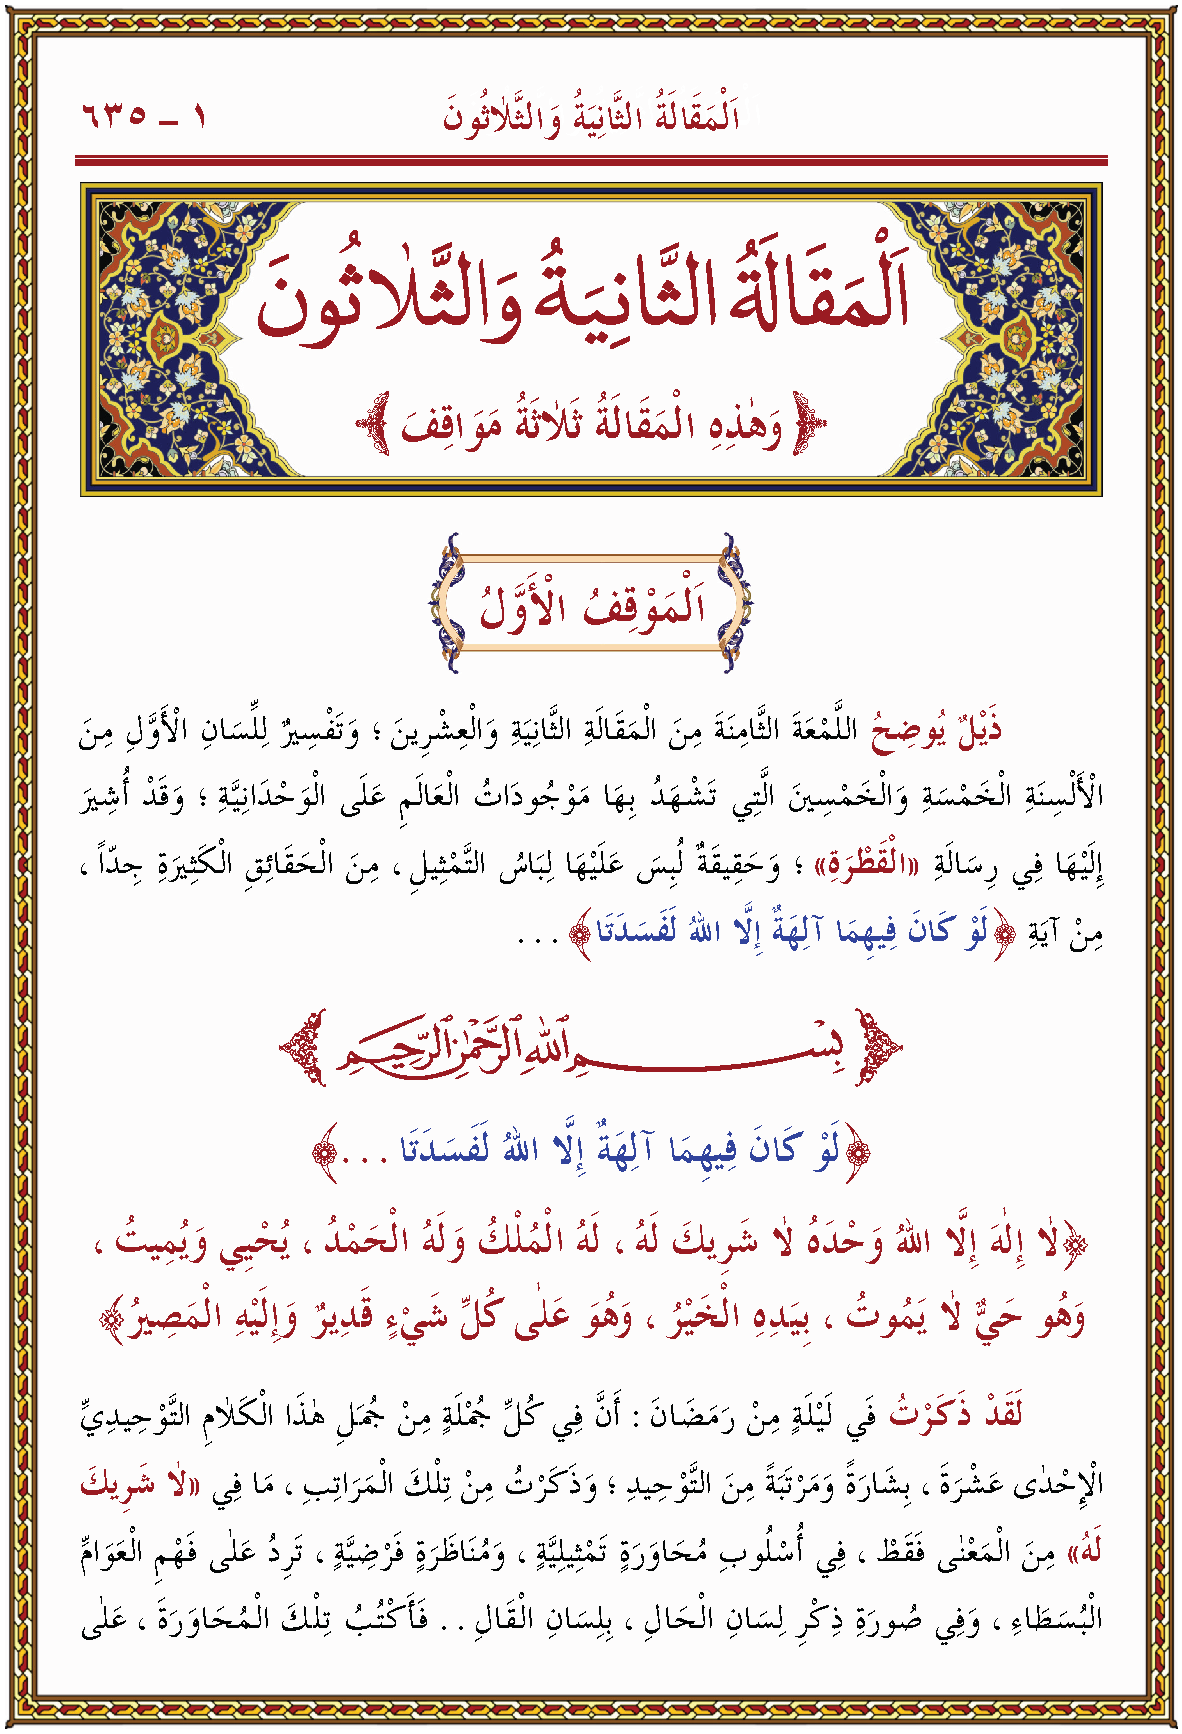 اَلْمَقَالَةُ الثَّانِيَةُ وَالثَّلَاثُونَ ١ ـ ٦٣٥
اَلْمَقَالَةُ الثَّانِيَةُ وَالثَّلَاثُونَ
وَهٰذِهِ الْمَقَالَةُ ثَلَاثَةُ مَوَاقِفَ
اَلْمَوْقِفُ الْأَوَّلُ
ذَيْلٌ يُوضِحُ اللَّمْعَةَ الثَّامِنَةَ مِنَ الْمَقَالَةِ الثَّانِيَةِ وَالْعِشْرِينَ ؛ وَتَفْسِيرٌ لِلِّسَانِ الْأَوَّلِ مِنَ
الْأَلْسِنَةِ الْخَمْسَةِ وَالْخَمْسِينَ الَّتِي تَشْهَدُ بِهَا مَوْجُودَاتُ الْعَالَمِ عَلَى الْوَحْدَانِيَّةِ ؛ وَقَدْ أُشِيرَ
إِلَيْهَا فِي رِسَالَةِ «الْقَطْرَةِ» ؛ وَحَقِيقَةٌ لُبِسَ عَلَيْهَا لِبَاسُ التَّمْثِيلِ ، مِنَ الْحَقَائِقِ الْكَثِيرَةِ جِدّاً ،
مِنْ آيَةِ ﴿لَوْ كَانَ فِيهِمَا آلِهَةٌ إِلَّا اللهُ لَفَسَدَتَا﴾ . . .
بِسْمِ اللهِ الرَّحْمٰنِ الرَّحِيمِ
﴿لَوْ كَانَ فِيهِمَا آلِهَةٌ إِلَّا اللهُ لَفَسَدَتَا . . .﴾
﴿لَا إِلٰهَ إِلَّا اللهُ وَحْدَهُ لَا شَرِيكَ لَهُ ، لَهُ الْمُلْكُ وَلَهُ الْحَمْدُ ، يُحْيِي وَيُمِيتُ ،
وَهُوَ حَيٌّ لَا يَمُوتُ ، بِيَدِهِ الْخَيْرُ ، وَهُوَ عَلَى كُلِّ شَيْءٍ قَدِيرٌ وَإِلَيْهِ الْمَصِيرُ﴾
لَقَدْ ذَكَرْتُ فَي لَيْلَةٍ مِنْ رَمَضَانَ : أَنَّ فِي كُلِّ جُمْلَةٍ مِنْ جُمَلِ هٰذَا الْكَلَامِ التَّوْحِيدِيِّ
الْإِحْدٰى عَشْرَةَ ، بِشَارَةً وَمَرْتَبَةً مِنَ التَّوْحِيدِ ؛ وَذَكَرْتُ مِنْ تِلْكَ الْمَرَاتِبِ ، مَا فِي «لَا شَرِيكَ
لَهُ» مِنَ الْمَعْنٰى فَقَطْ ، فِي أُسْلُوبِ مُحَاوَرَةٍ تَمْثِيلِيَّةٍ ، وَمُنَاظَرَةٍ فَرْضِيَّةٍ ، تَرِدُ عَلَى فَهْمِ الْعَوَامِّ
الْبُسَطَاءِ ، وَفِي صُورَةِ ذِكْرِ لِسَانِ الْحَالِ ، بِلِسَانِ الْقَالِ . . فَأَكْتُبُ تِلْكَ الْمُحَاوَرَةَ ، عَلَى